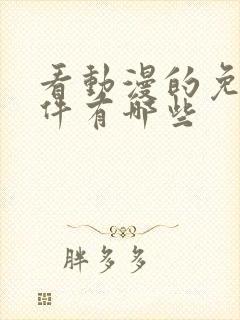 看動漫的免
件有哪些
胖多多